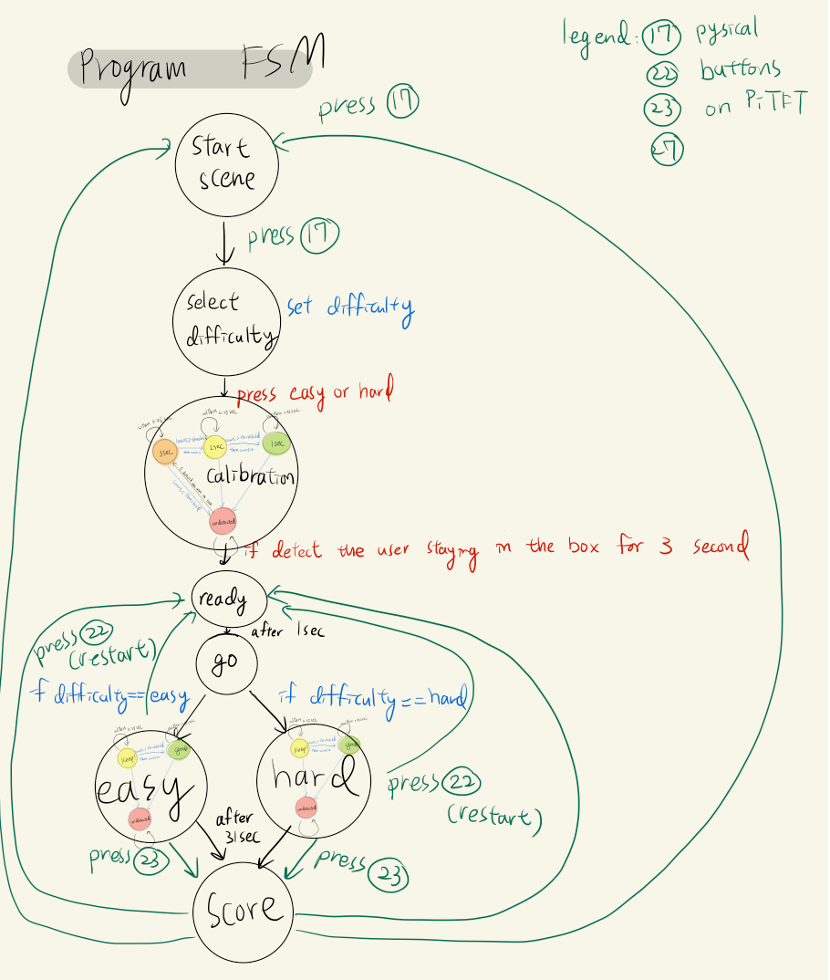 Program FSM
legend: 17 pysical
22 buttons
23 on PiTFT
27
press 17
start
scene
press 17
select
difficulty
set difficulty
press easy or hard
3sec
2sec
1sec
calibration
if detect the user staying in the box for 3 second
ready
after 1sec
go
press 22
(restart)
if difficulty==easy
if difficulty==hard
keep
good
keep
good
easy
hard
press 22
(restart)
after
31sec
press 23
press 23
Score